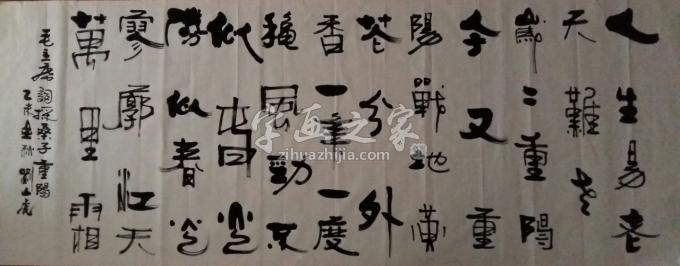 人生易老
天難老
歲二重陽
今又重
陽戰地黄
花分外
香一年一度
龝風勁不
似春光
勝似春光
寥廓江天
萬里霜
毛主席詞採桑子重陽
乙未 劉山虎
字画之家
zihuazhijia.com